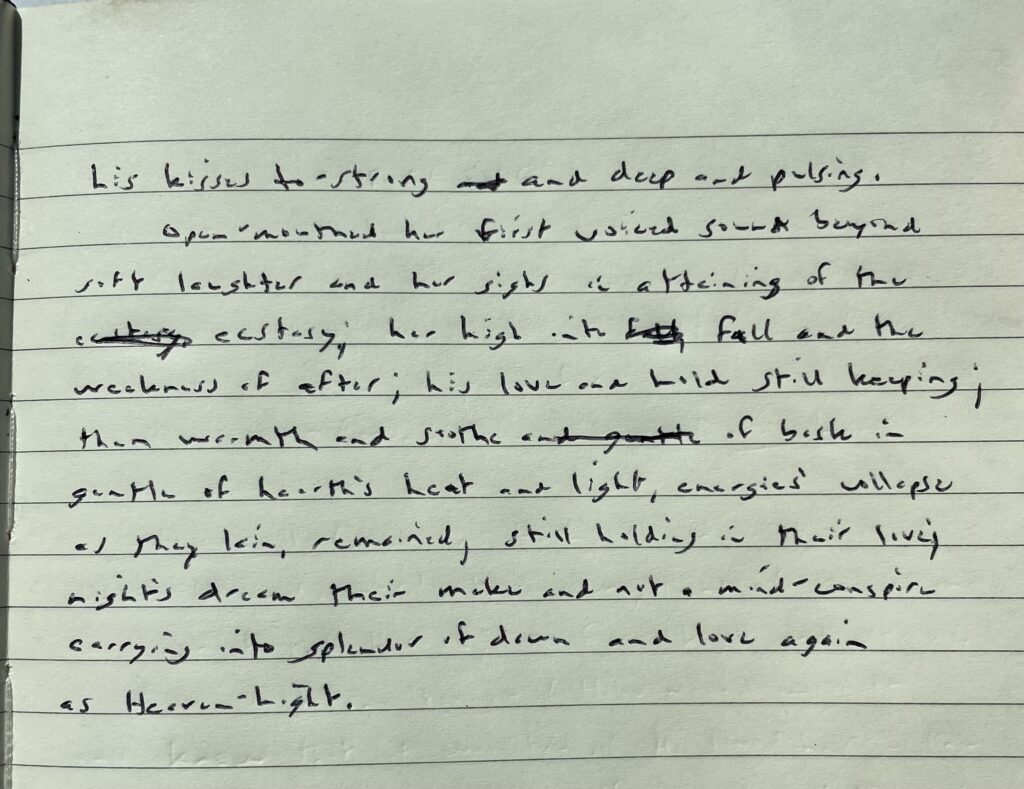 his kisses to-strong and and deep and pulsing.
Open-mouthed her first voiced sound beyond
soft laughter and her sighs in attaining of the
ecstasy; her high into fall and the
weakness of after; his love and hold still keeping;
then warmth and soothe and gentle of bask in
gentle of hearth's heat and light, energies' collapse
as they lain, remained, still holding in their love;
night's dream their make and not a mind-conspire
carrying into splendor of dawn and love again
as Heaven-hight.